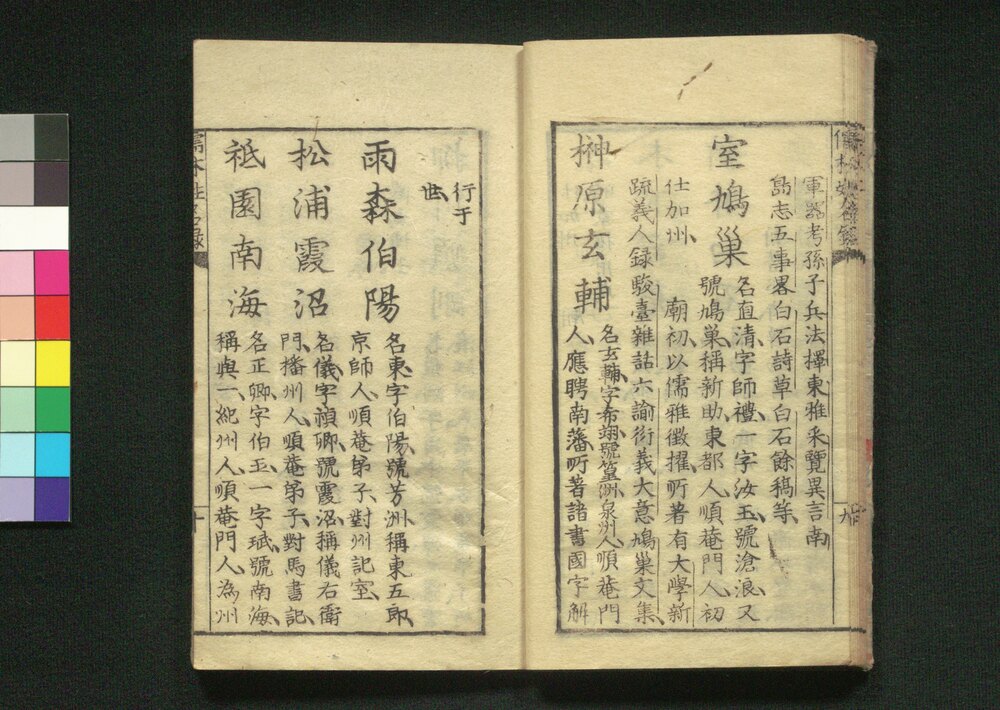 軍器考孫子兵法擇東雅采覽異言南
島志五事畧白石詩草白石餘稿等
室鳩巢
名直清字師禮一字汝玉號滄浪又
號鳩巢稱新助東都人順菴門人初
仕加州 廟初以儒雅徵擢所著有大學新
疏義人録駿臺雜話六諭衍義大意鳩巢文集
榊原玄輔
名玄輔字希翊號篁洲泉州人順菴門
人應聘南藩所著諸書國字解
行于
世
雨森伯陽
名東字伯陽號芳洲稱東五郎
京師人順菴弟子對州記室
松浦霞沼
名儀字禎卿號霞沼稱儀右衛
門播州人順菴弟子對馬書記
祇園南海
名正卿字伯玉一字珷號南海
稱與一紀州人順菴門人為州